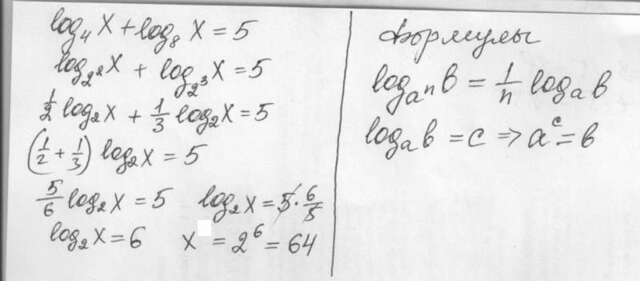 log₄ x + log₈ x = 5
log_{2²} x + log_{2³} x = 5
1/2 log₂ x + 1/3 log₂ x = 5
(1/2 + 1/3) log₂ x = 5
5/6 log₂ x = 5   log₂ x = 5 · 6/5
log₂ x = 6   x = 2⁶ = 64
Формулы
log_{aⁿ} b = 1/n log_a b
log_a b = c ⇒ a^c = b